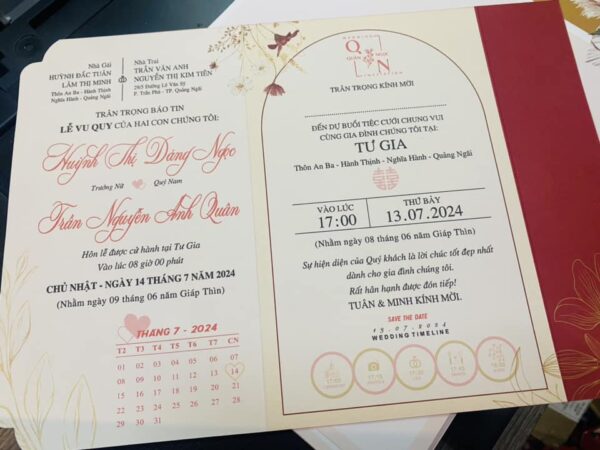 Nhà Gái
HUỲNH ĐẮC TUẤN
LÂM THỊ MINH
Thôn An Ba - Hành Thịnh
Nghĩa Hành - Quảng Ngãi
Nhà Trai
TRẦN VĂN ANH
NGUYỄN THỊ KIM TIÊN
29/5 Đường Lê Văn Sỹ
P. Trần Phú - TP. Quảng Ngãi
TRÂN TRỌNG BÁO TIN
LỄ VU QUY CỦA HAI CON CHÚNG TÔI:
Huỳnh Thị Dáng Ngọc
Trưởng Nữ
Quý Nam
Trần Nguyễn Anh Quân
Hôn lễ được cử hành tại Tư Gia
Vào lúc 08 giờ 00 phút
CHỦ NHẬT - NGÀY 14 THÁNG 7 NĂM 2024
(Nhằm ngày 09 tháng 06 năm Giáp Thìn)
THÁNG 7 - 2024
T2 T3 T4 T5 T6 T7 CN
01 02 03 04 05 06 07
08 09 10 11 12 13 14
15 16 17 18 19 20 21
22 23 24 25 26 27 28
29 30 31
WEDDING
Q
QUÂN NGỌC
N
INVITATION
TRÂN TRỌNG KÍNH MỜI
ĐẾN DỰ BUỔI TIỆC CƯỚI CHUNG VUI
CÙNG GIA ĐÌNH CHÚNG TÔI TẠI:
TƯ GIA
Thôn An Ba - Hành Thịnh - Nghĩa Hành - Quảng Ngãi
囍
VÀO LÚC
17:00
THỨ BẢY
13.07.2024
(Nhằm ngày 08 tháng 06 năm Giáp Thìn)
Sự hiện diện của Quý khách là lời chúc tốt đẹp nhất
dành cho gia đình chúng tôi.
Rất hân hạnh được đón tiếp!
TUẤN & MINH KÍNH MỜI.
SAVE THE DATE
13.07.2024
WEDDING TIMELINE